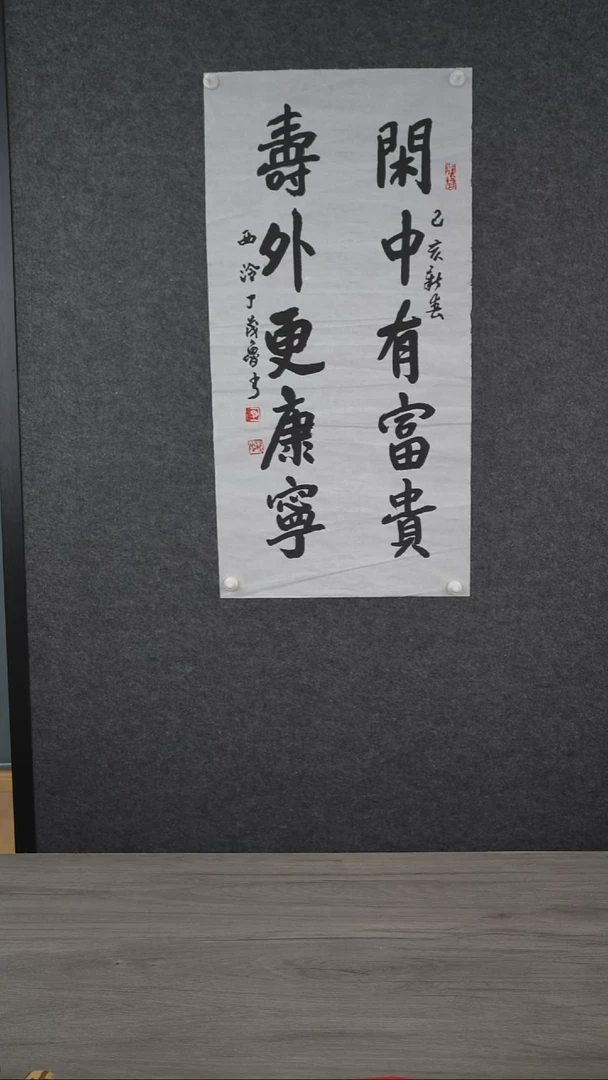 閑中有富貴
己亥新春
壽外更康寧
西泠丁茂魯书